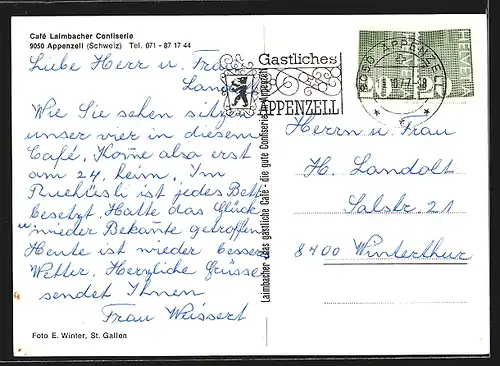 Café Laimbacher Confiserie
9050 Appenzell (Schweiz) Tel. 071 - 87 17 44
Liebe Herr u. Frau
Landolt
Wie Sie sehen sitzen
unser vier in diesem
Café. Kome also erst
am 24. heim. Im
ist jedes Bett
besetzt. Hatte das Glück
wieder Bekante getroffen
Heute ist wieder besser
Wetter. Herzliche Grüsse
sendet Ihnen
Frau Weissert
Foto E. Winter, St. Gallen
Laimbacher - das gastliche Café - die gute Confiserie
Gastliches
APPENZELL
9050 APPENZELL
HELVETIA
Herrn u. Frau
H. Landolt
Salstr. 21
8400 Winterthur